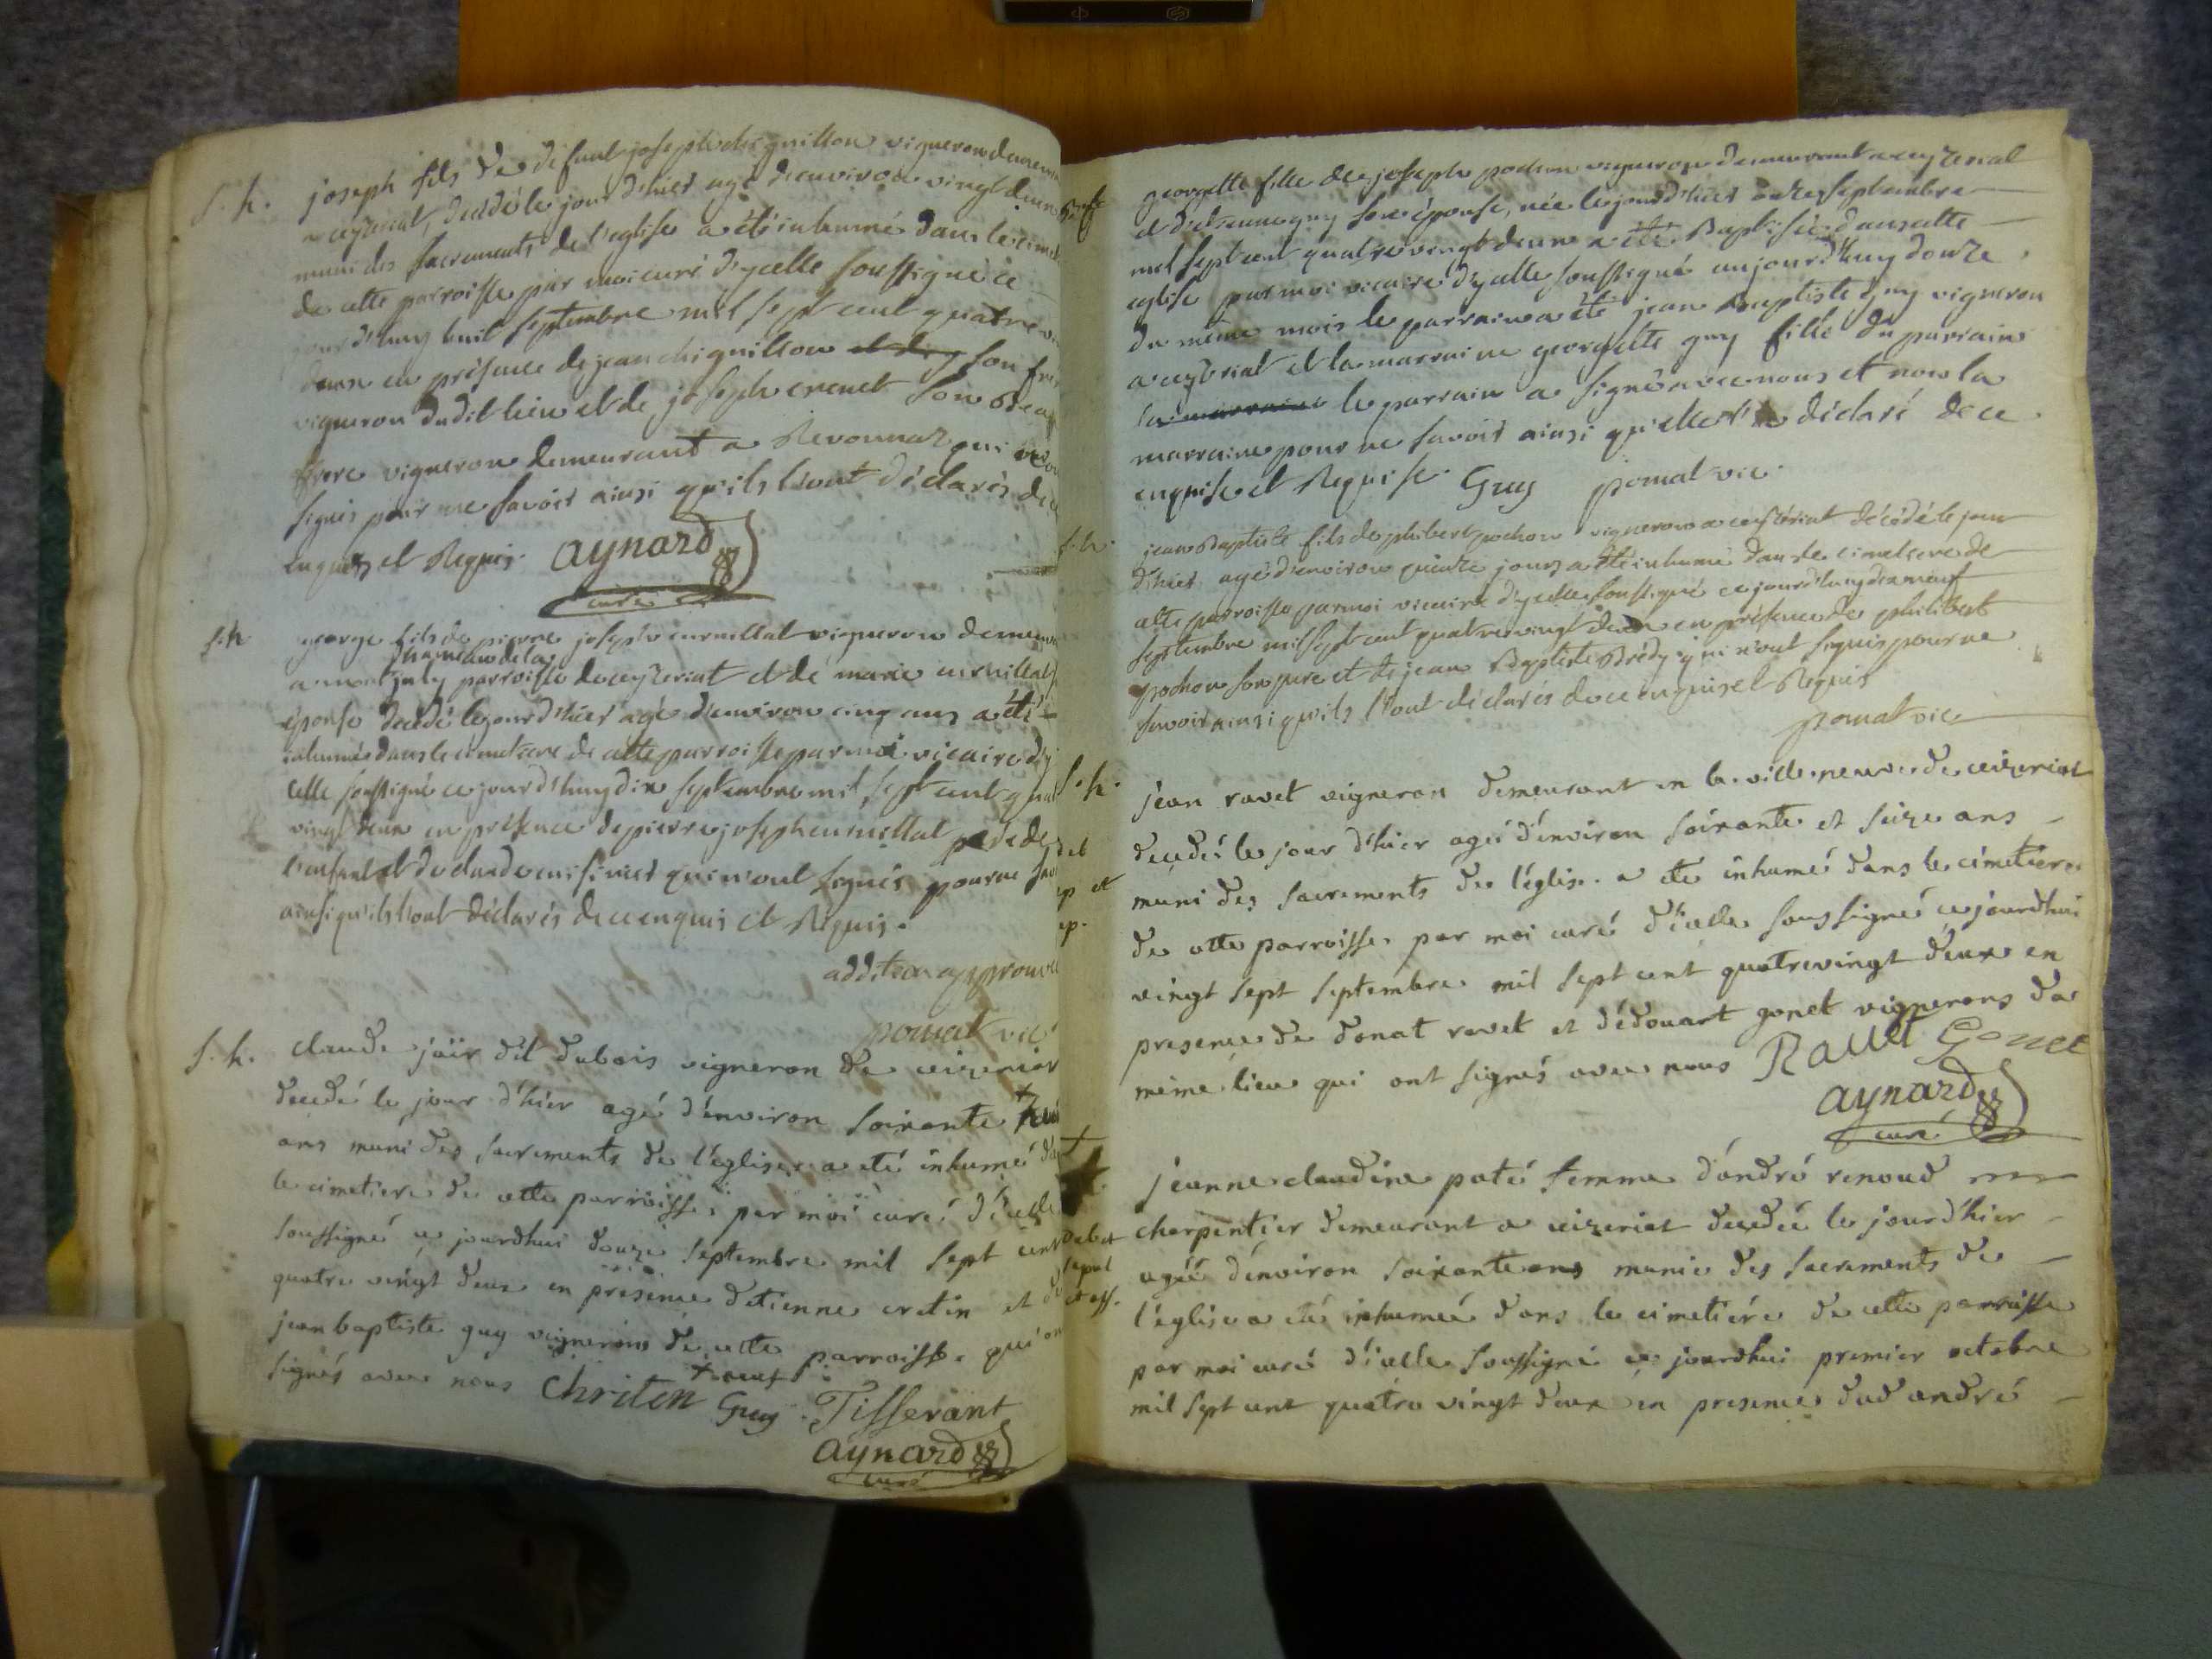 s. h. joseph fils de défunt joseph chignillon vigneron demeur
a ceyzeriat, décédé le jour d'hier agé d'environ vingt deux
muni des sacrements de l'eglise a été inhumé dans le cimet
de cette parroisse par moi curé d'ycelle soussigné ce
jour d'huy huit septembre mil sept cent quatre vi
deux en présence de jean chignillon son frer
vigneron dudit lieu et de joseph crenet son Beau
frere vigneron demeurant a Revonnaz qui
signés pour ne savoir ainsi qu'ils l'ont déclarés de ce
enquis et Requis. aynard
curé
s. h george fils de pierre joseph curnillat vigneron demeur
hameau de la
a mont july parroisse de ceyzeriat et de marie curnillat
épouse decédé le jour d'hier agé d'environ cinq ans a été
inhumé dans le cimetiere de cette parroisse par moi vicaire d'y
celle soussigné ce jour d'huy dix septembre mil sept cent quat
vingt deux en présence de pierre joseph curnillat pere de
l'enfant et de claude cuisinier qui n'ont signés pour ne sav
ainsi qu'ils l'ont déclarés de ce enquis et Requis.
addition approuvé
pomat vic
s. h. claude jair dit dubois vigneron de ceizeriat
decedé le jour d'hier agé d'environ soixante
ans muni des sacrements de l'église a eté inhumé da
le cimetiere de cette parroisse, par moi curé d'icelle
soussigné ce jourdhui douze septembre mil sept cent
quatre vingt deux en présence detienne cretin et de
jean baptiste guy vignerons de cette parroisse, qui on
signés avec nous Chriten neuf Guy Tisserant
aynard
curé
georgette fille de joseph pochon vigneron demeurant a ceyzeriat
et d'etiennne guy son épouse, née le jour d'hier onze septembre
mil sept cent quatre vingt deux a été Baptisée dans cette
eglise par moi vicaire d'ycelle soussigné aujourd'huy douze
du même mois le parrain a été jean Baptiste guy vigneron
a ceyzeriat et la marraine georgette guy fille du parrain
la marraine le parrain a signé avec nous et non la
marraine pour ne savoir ainsi qu'elle l'a déclaré de ce
enquise et Requise. Guy pomat vic.
s. h. jean Baptiste fils de philibert pochon vigneron a ceyzériat décédé le jour
d'hier agé d'environ quinze jours a été inhumé dans le cimetiere de
cette parroisse par moi vicaire d'ycelle soussigné ce jour d'huy dix neuf
septembre mil sept cent quatre vingt deux en présence de philibert
pochon son pere et de jean Baptiste Brédy qui n'ont signés pour ne
savoir ainsi qu'ils l'ont déclarés de ce enquis et Requis
pomat vic
s. h. jean ravet vigneron demeurant en la ville neuve de ceizeriat
decedé le jour d'hier agé d'environ soixante et seize ans
muni des sacrements de l'église. a eté inhumé dans le cimetiere
de cette parroisse, par moi curé d'icelle soussigné ce jourdhui
vingt sept septembre mil sept cent quatrevingt deux en
presence de donat ravet et d'édouart gonet vignerons du
même lieu qui ont signés avec nous Ravet Gonet
aynard
curé
jeanne claudine paté femme d'andré renoud
charpentier demeurant a ceizeriat decedée le jour d'hier
agée d'environ soixante ans munie des sacrements de
l'église a eté inhumée dans le cimetiére de cette parroisse
par moi curé d'icelle soussigné ce jourdhui premier octobre
mil sept cent quatre vingt deux en presence dud andré